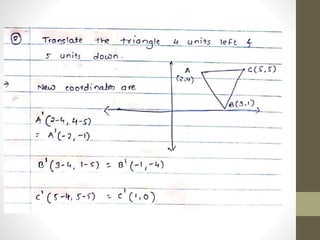 ② Translate the triangle 4 units left &
5 units down.
A
(2,4)
C(5,5)
B(3,1)
→ New coordinates are
A'(2-4, 4-5)
= A'(-2, -1)
B'(3-4, 1-5) = B'(-1,-4)
C'(5-4, 5-5) = C'(1,0)